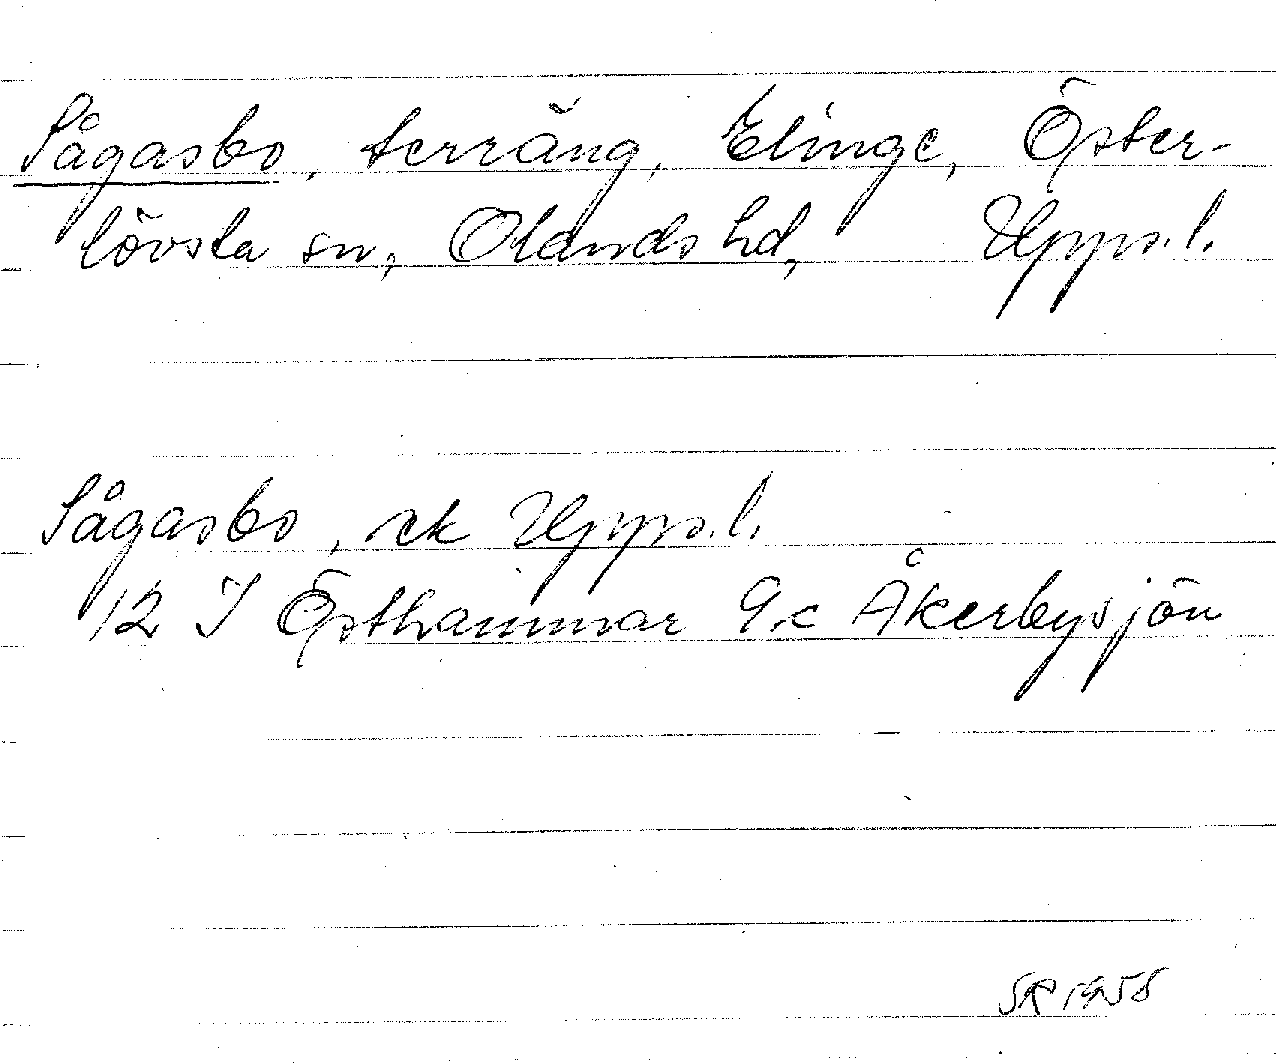 Sågasbo, terräng, Elinge, Öster-
lövsta sn, Olands hd, Upps.l.
Sågasbo, ek Upps.l.
12 I Östhammar 9c Åkerbysjön
SR 1958